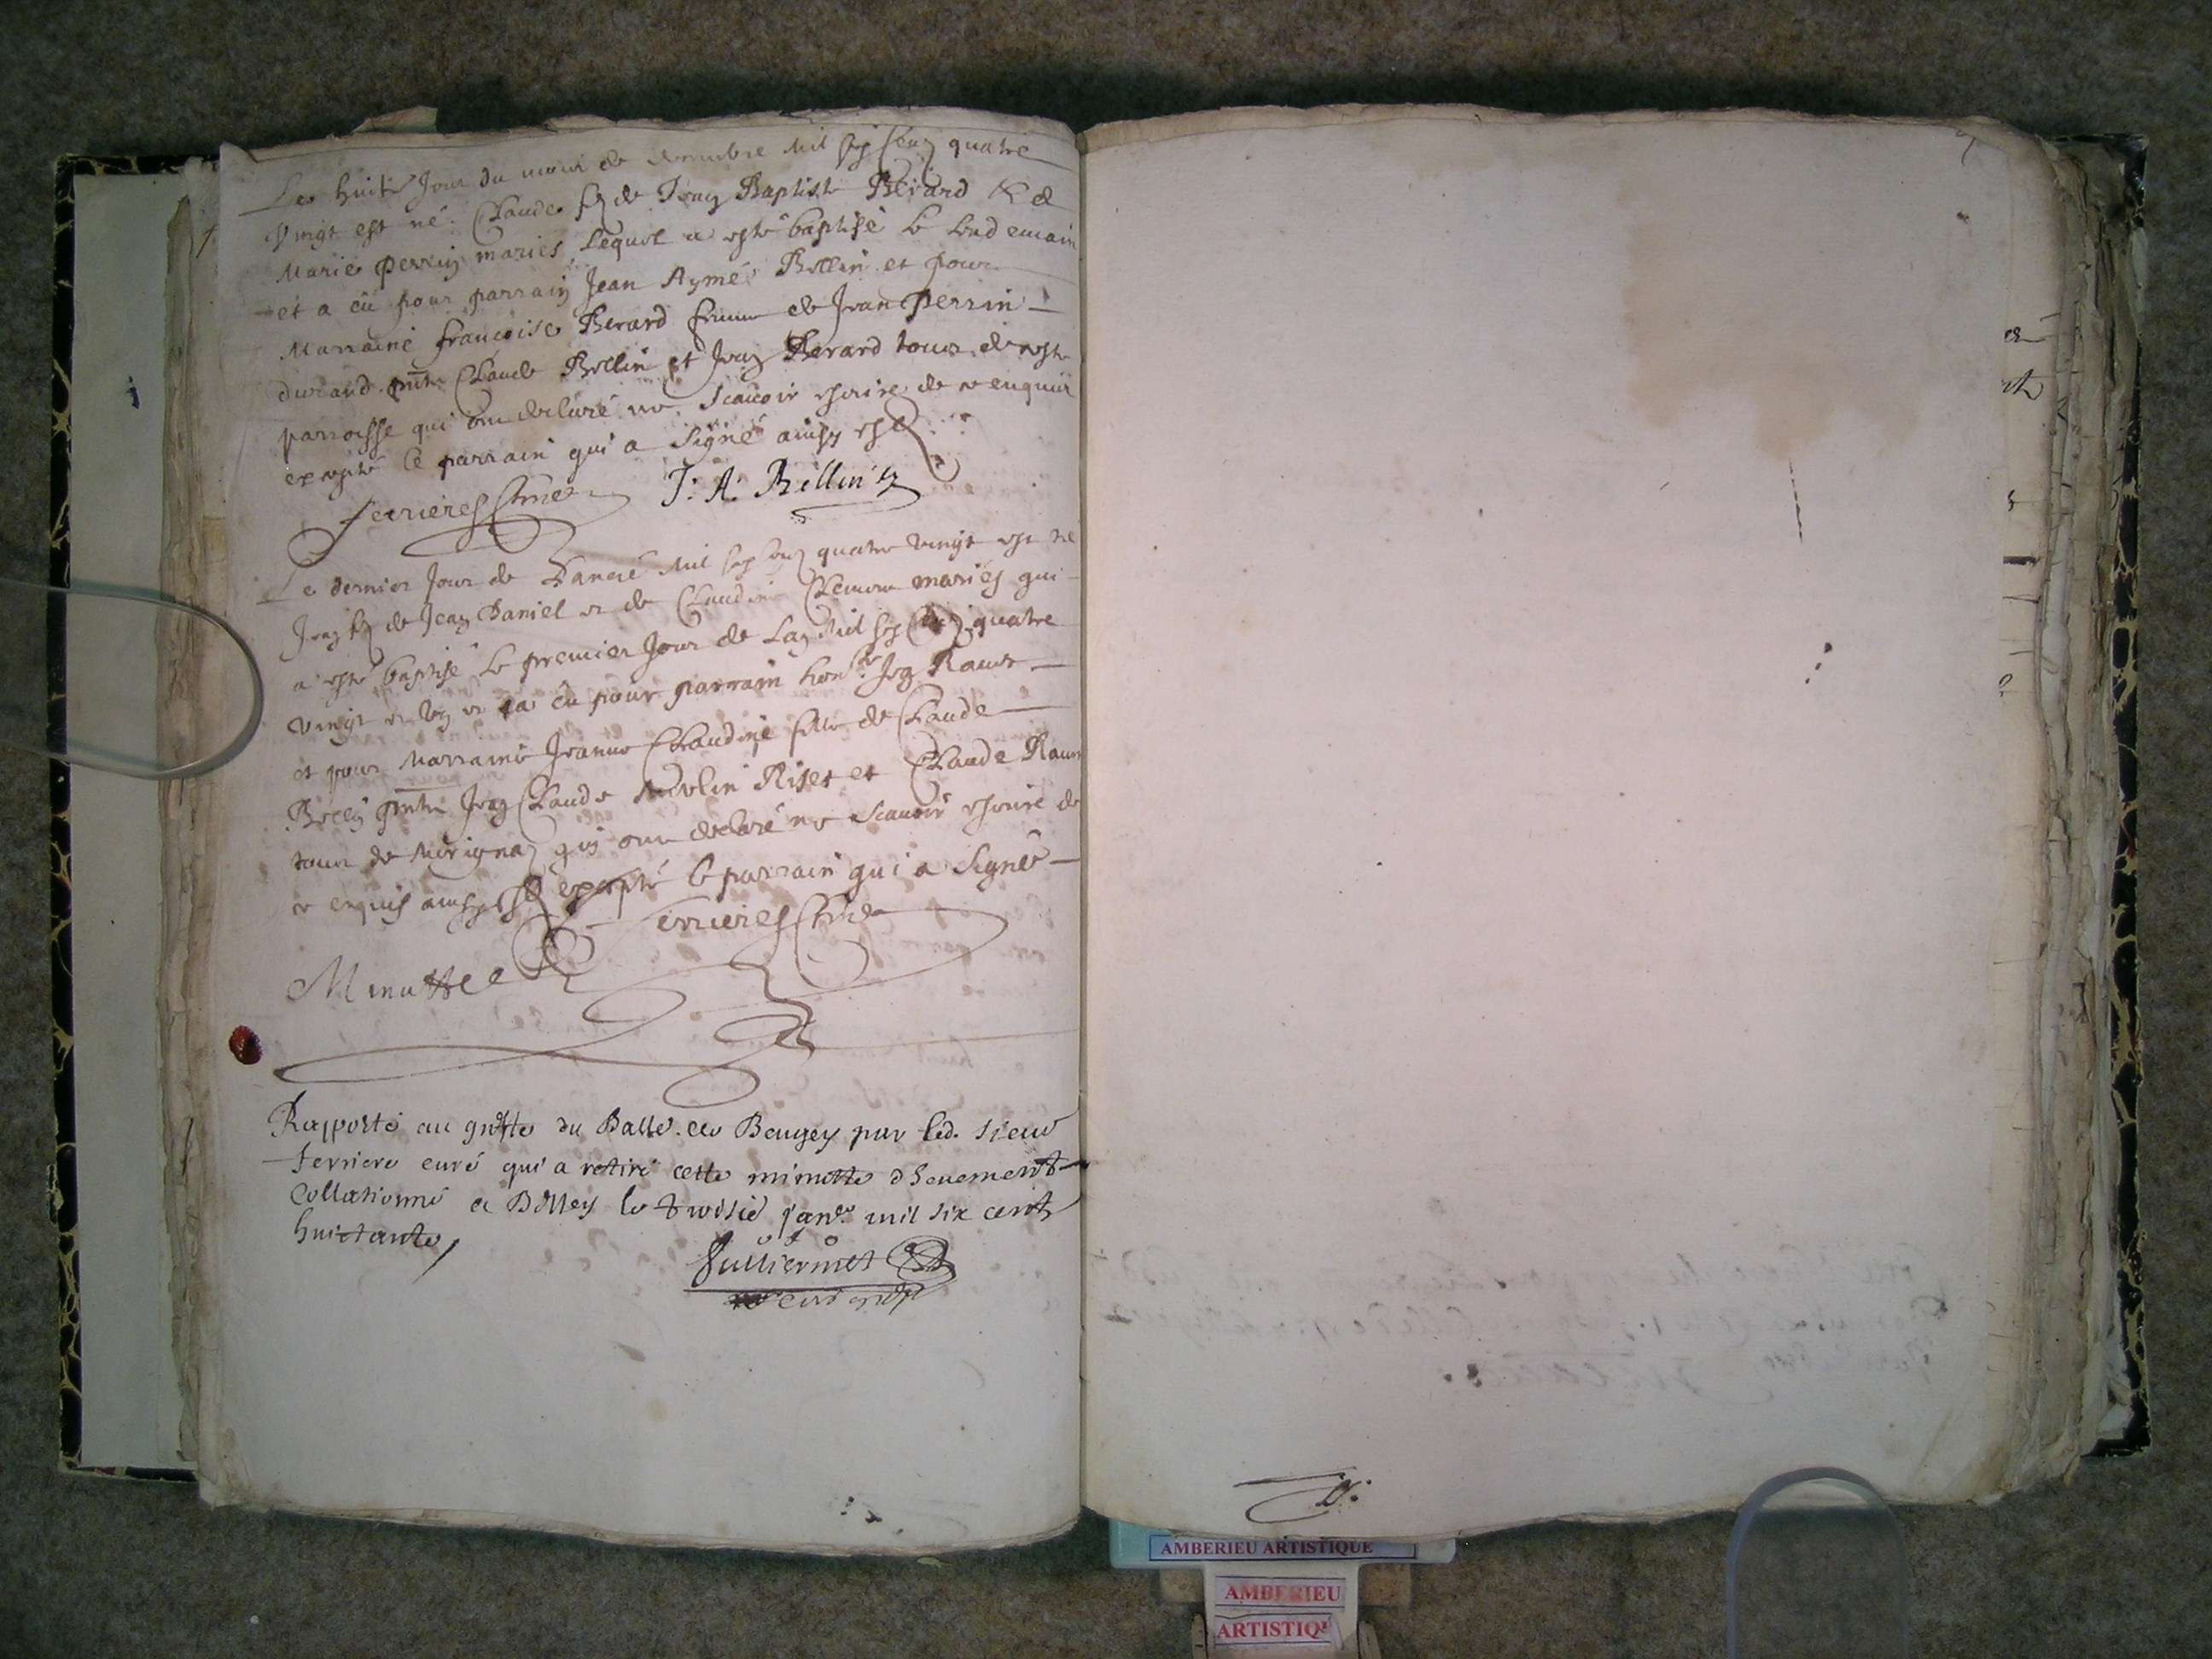 Le huit.e Jour du mois de decembre Mil six cens quatre
vingt est né Claude fz de Jean Baptiste Berard & de
Marie perrin mariés, Lequel a esté baptisé le lendemain
et a eû pour parrain Jean Aymé Bellin et pour
Marraine francoise Berard femme de Jean Perrin
durand. pnts Claude Bellin et Jean Berard tous de cette
parroisse qui ont declaré ne scauoir escrire de ce enquis
excepté le parrain qui a signé ainsy est
ferrieres Curé J: A: Bellin
Le dernier Jour de L'année Mil six cens quatre vingt est né
Jean fz de Jean Daniel et de Claudine mariés qui
a esté baptisé le premier Jour de Lan Mil six cens quatre
vingt et un et a eû pour parrain hon.ble Jean
et pour Marraine Jeanne Claudine fille de Claude
pnts Jean Claude Riset et Claude
tous de Merignaz qui ont declaré ne scauoir escrire de
ce enquis ainsy est excepté le parrain qui a signé
ferrieres Curé
Minutte
Rapporté au greffe du Ballé. de Beugey par led. sieur
ferriere curé qui a retiré cette minutte dheuement
Collationné a Belley le troisié janer mil six cent
huictante,
Julliermet
AMBERIEU ARTISTIQUE
AMBERIEU
ARTISTIQU